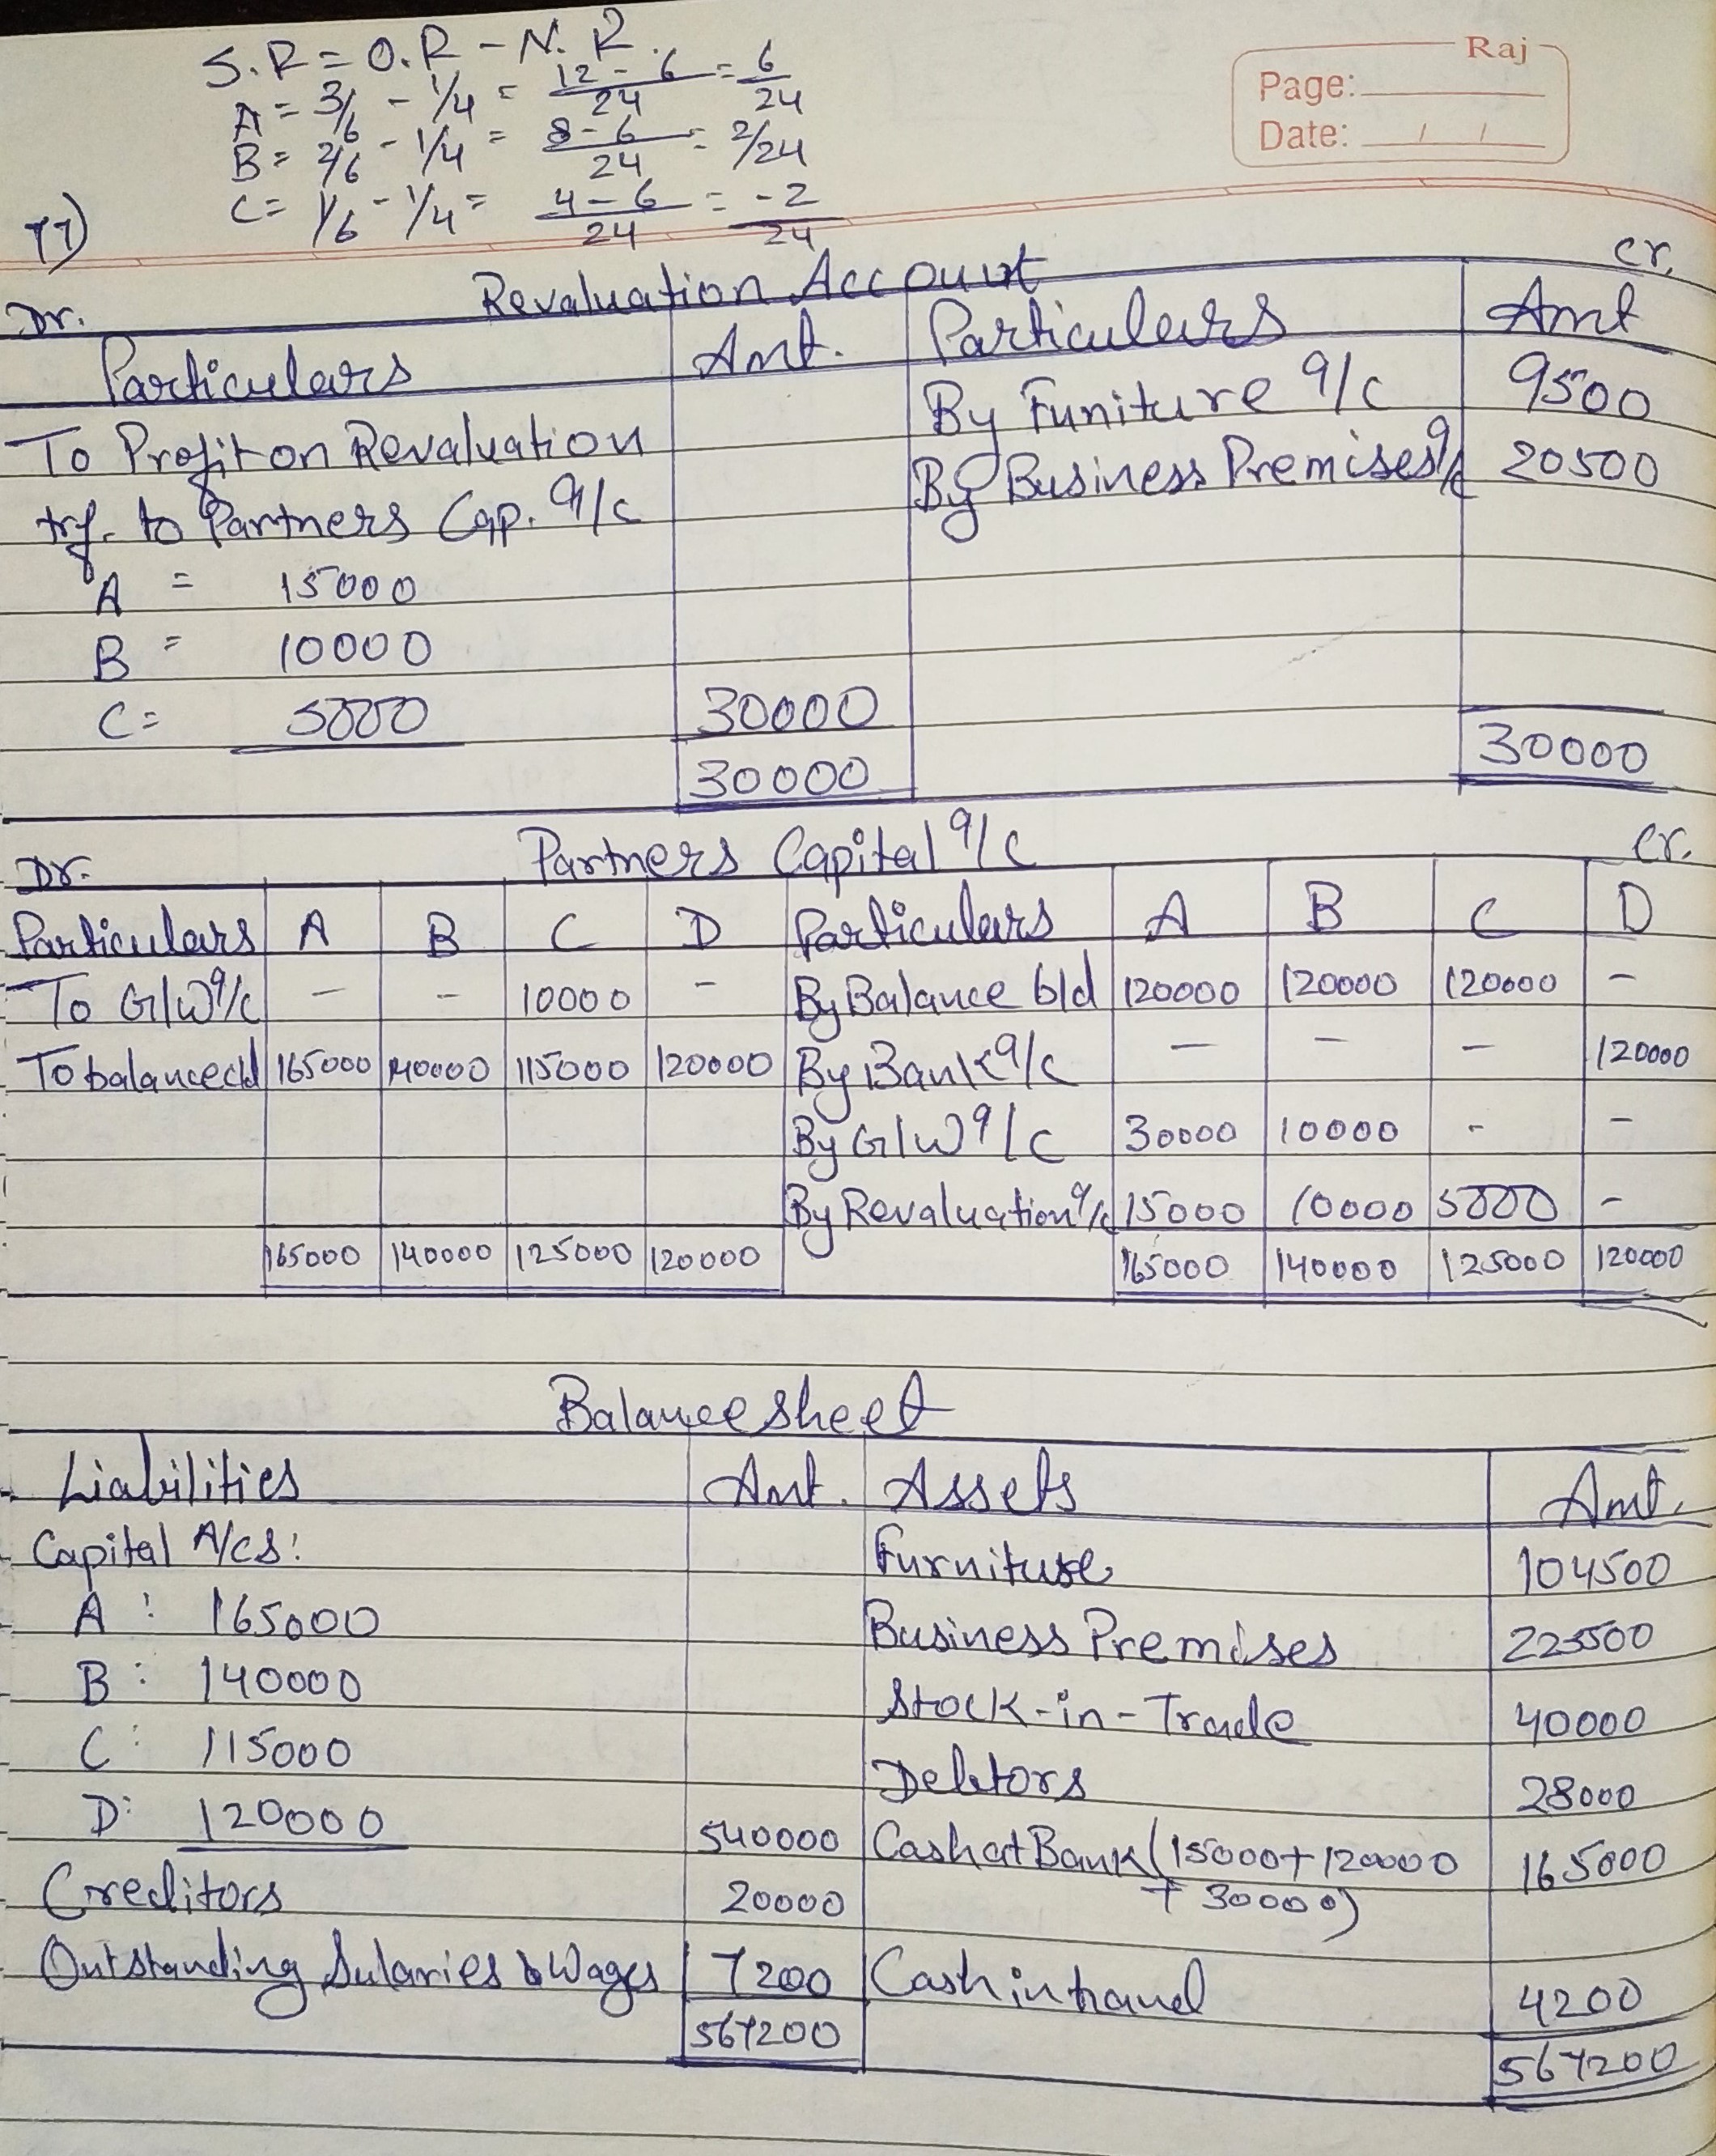 S.R = O.R - N.R.
A = 3/6 - 1/4 = 12 - 6 / 24 = 6/24
B = 2/6 - 1/4 = 8 - 6 / 24 = 2/24
C = 1/6 - 1/4 = 4 - 6 / 24 = -2/24
Raj
Page:
Date: / /
77)
Dr. Revaluation Account Cr.
Particulars Amt. Particulars Amt
To Profit on Revaluation By Funiture a/c 9500
trf. to Partners Cap. a/c By Business Premises a/c 20500
A = 15000
B = 10000
C = 5000 30000
30000 30000
Dr. Partners Capital a/c Cr.
Particulars A B C D Particulars A B C D
To G/W a/c - - 10000 - By Balance b/d 120000 120000 120000 -
To balance c/d 165000 140000 115000 120000 By Bank a/c - - - 120000
By G/W a/c 30000 10000 - -
By Revaluation a/c 15000 10000 5000 -
165000 140000 125000 120000 165000 140000 125000 120000
Balance Sheet
Liabilities Amt. Assets Amt.
Capital A/cs: Furniture 104500
A : 165000 Business Premises 225500
B : 140000 Stock-in-Trade 40000
C : 115000 Debtors 28000
D : 120000 540000 Cash at Bank (15000 + 120000 165000
Creditors 20000 + 30000)
Outstanding Salaries & Wages 7200 Cash in hand 4200
567200 567200